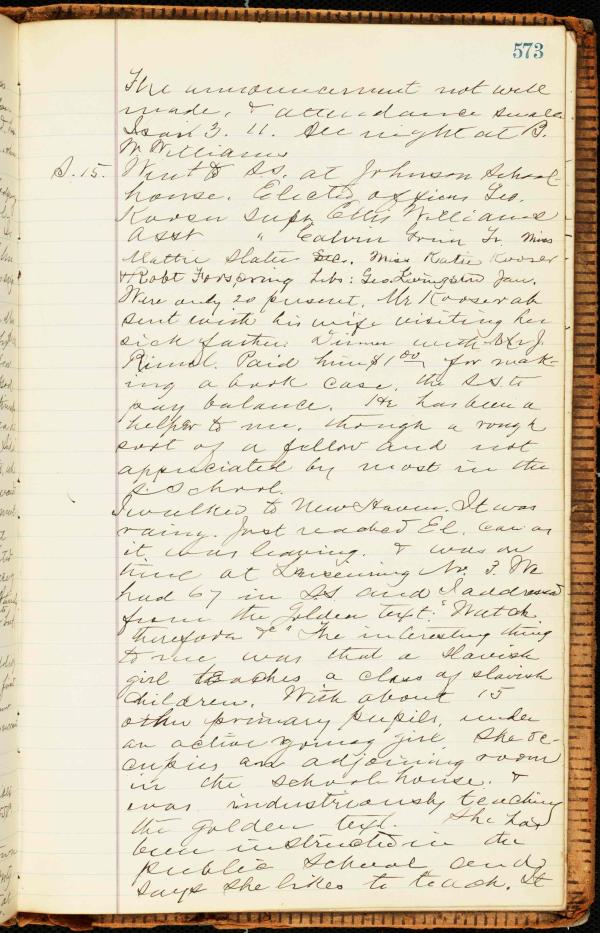 573
The announcement not well
made, & attendance small
Isaah 3. 11. All night at B.
W Williams
S. 15. Went to S.S. at Johnson School-
house. Elected officers Geo.
Kooser Supt. Ellis Williams
Asst " Calvin Jr. Miss
Mattie Slater Sec. Miss Katie Kooser
& Robt Forspring Libs: Geo Livingston Jan.
Were only 20 present. Mr Kooser ab
sent with his wife visiting her
sick father. Dinner with J.
Rimel. Paid him $1 00 for mak-
ing a book case, the SS to
pay balance. He has been a
helper to me, though a rough
sort of a fellow and not
appriciated by most in the
S. School.
I walked to New Haven. It was
rainy. Just reached El. car as
it was leaving. & was on
time at Leisenring No. 3. We
had 67 in SS and I addressed
from the Golden text. "Watch
therefore &c" The interesting thing
to me was that a Slavish
girl teaches a class of slavish
children. With about 15
other primary pupils, under
an active young girl She oc-
cupies an adjoining room
in the schoolhouse. &
was industriously teaching
the golden text. She had
been instructed in the
public school and
says she likes to teach. It